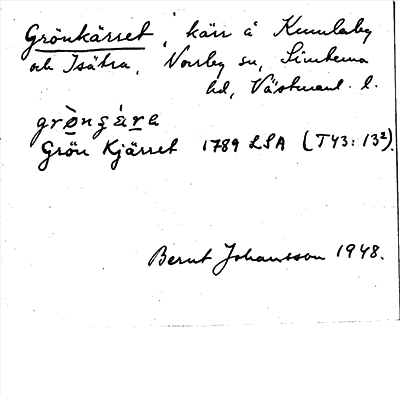 Grönkärret, kärr å Kumlaby
och Isätra, Norrby sn, Simtuna
hd, Västmanl. l.
grö̀nçä́rə
Grön Kjärret 1789 LSA (T43:13²).
Bernt Johansson 1948.